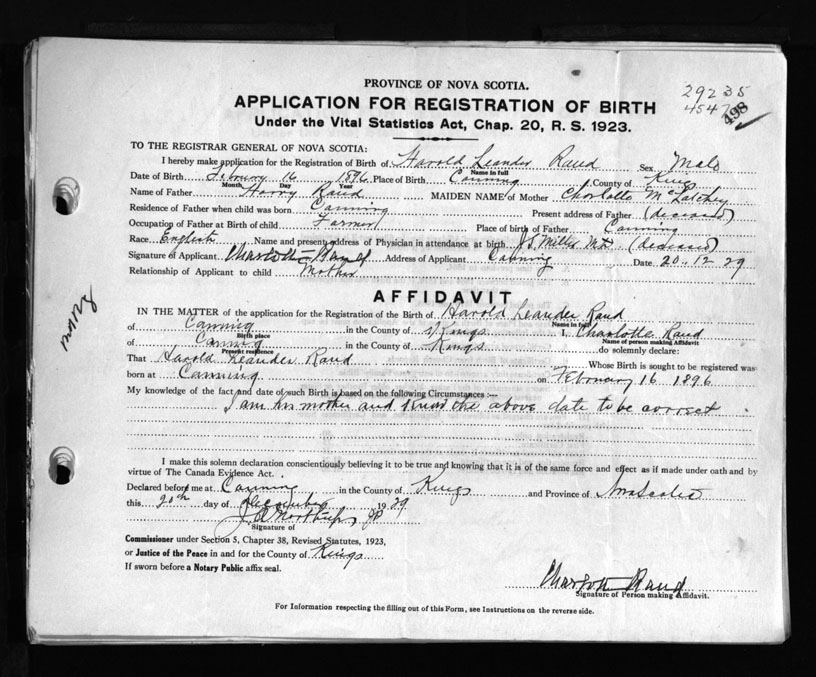 29235
4547
498
PROVINCE OF NOVA SCOTIA.
APPLICATION FOR REGISTRATION OF BIRTH
Under the Vital Statistics Act, Chap. 20, R. S. 1923.
TO THE REGISTRAR GENERAL OF NOVA SCOTIA:
I hereby make application for the Registration of Birth of Harold Leander Rand Sex Male
Name in full
Date of Birth February 16 1896 Place of Birth Canning County of Kings
Month Day Year
Name of Father Harry Rand MAIDEN NAME of Mother Charlotte McLatchey
Residence of Father when child was born Canning Present address of Father (deceased)
Occupation of Father at Birth of child Farmer Place of birth of Father Canning
Race English Name and present address of Physician in attendance at birth J.S. Miller M.D. (deceased)
Signature of Applicant Charlotte Rand Address of Applicant Canning Date 20..12 29
Relationship of Applicant to child Mother
AFFIDAVIT
IN THE MATTER of the application for the Registration of the Birth of Harold Leander Rand
Name in full
of Canning in the County of Kings I, Charlotte Rand
Birth place Name of person making Affidavit
of Canning in the County of Kings do solemnly declare:
Present residence
That Harold Leander Rand Whose Birth is sought to be registered was
born at Canning on February 16 1896
My knowledge of the fact and date of such Birth is based on the following Circumstances :—
I am his mother and know the above date to be correct
I make this solemn declaration conscientiously believing it to be true and knowing that it is of the same force and effect as if made under oath and by
virtue of The Canada Evidence Act.
Declared before me at Canning in the County of Kings and Province of Nova Scotia
this 20th day of December 1929
J.A. Northup JP
Signature of
Commissioner under Section 5, Chapter 38, Revised Statutes, 1923,
or Justice of the Peace in and for the County of Kings
If sworn before a Notary Public affix seal.
Charlotte Rand
Signature of Person making Affidavit.
For Information respecting the filling out of this Form, see Instructions on the reverse side.